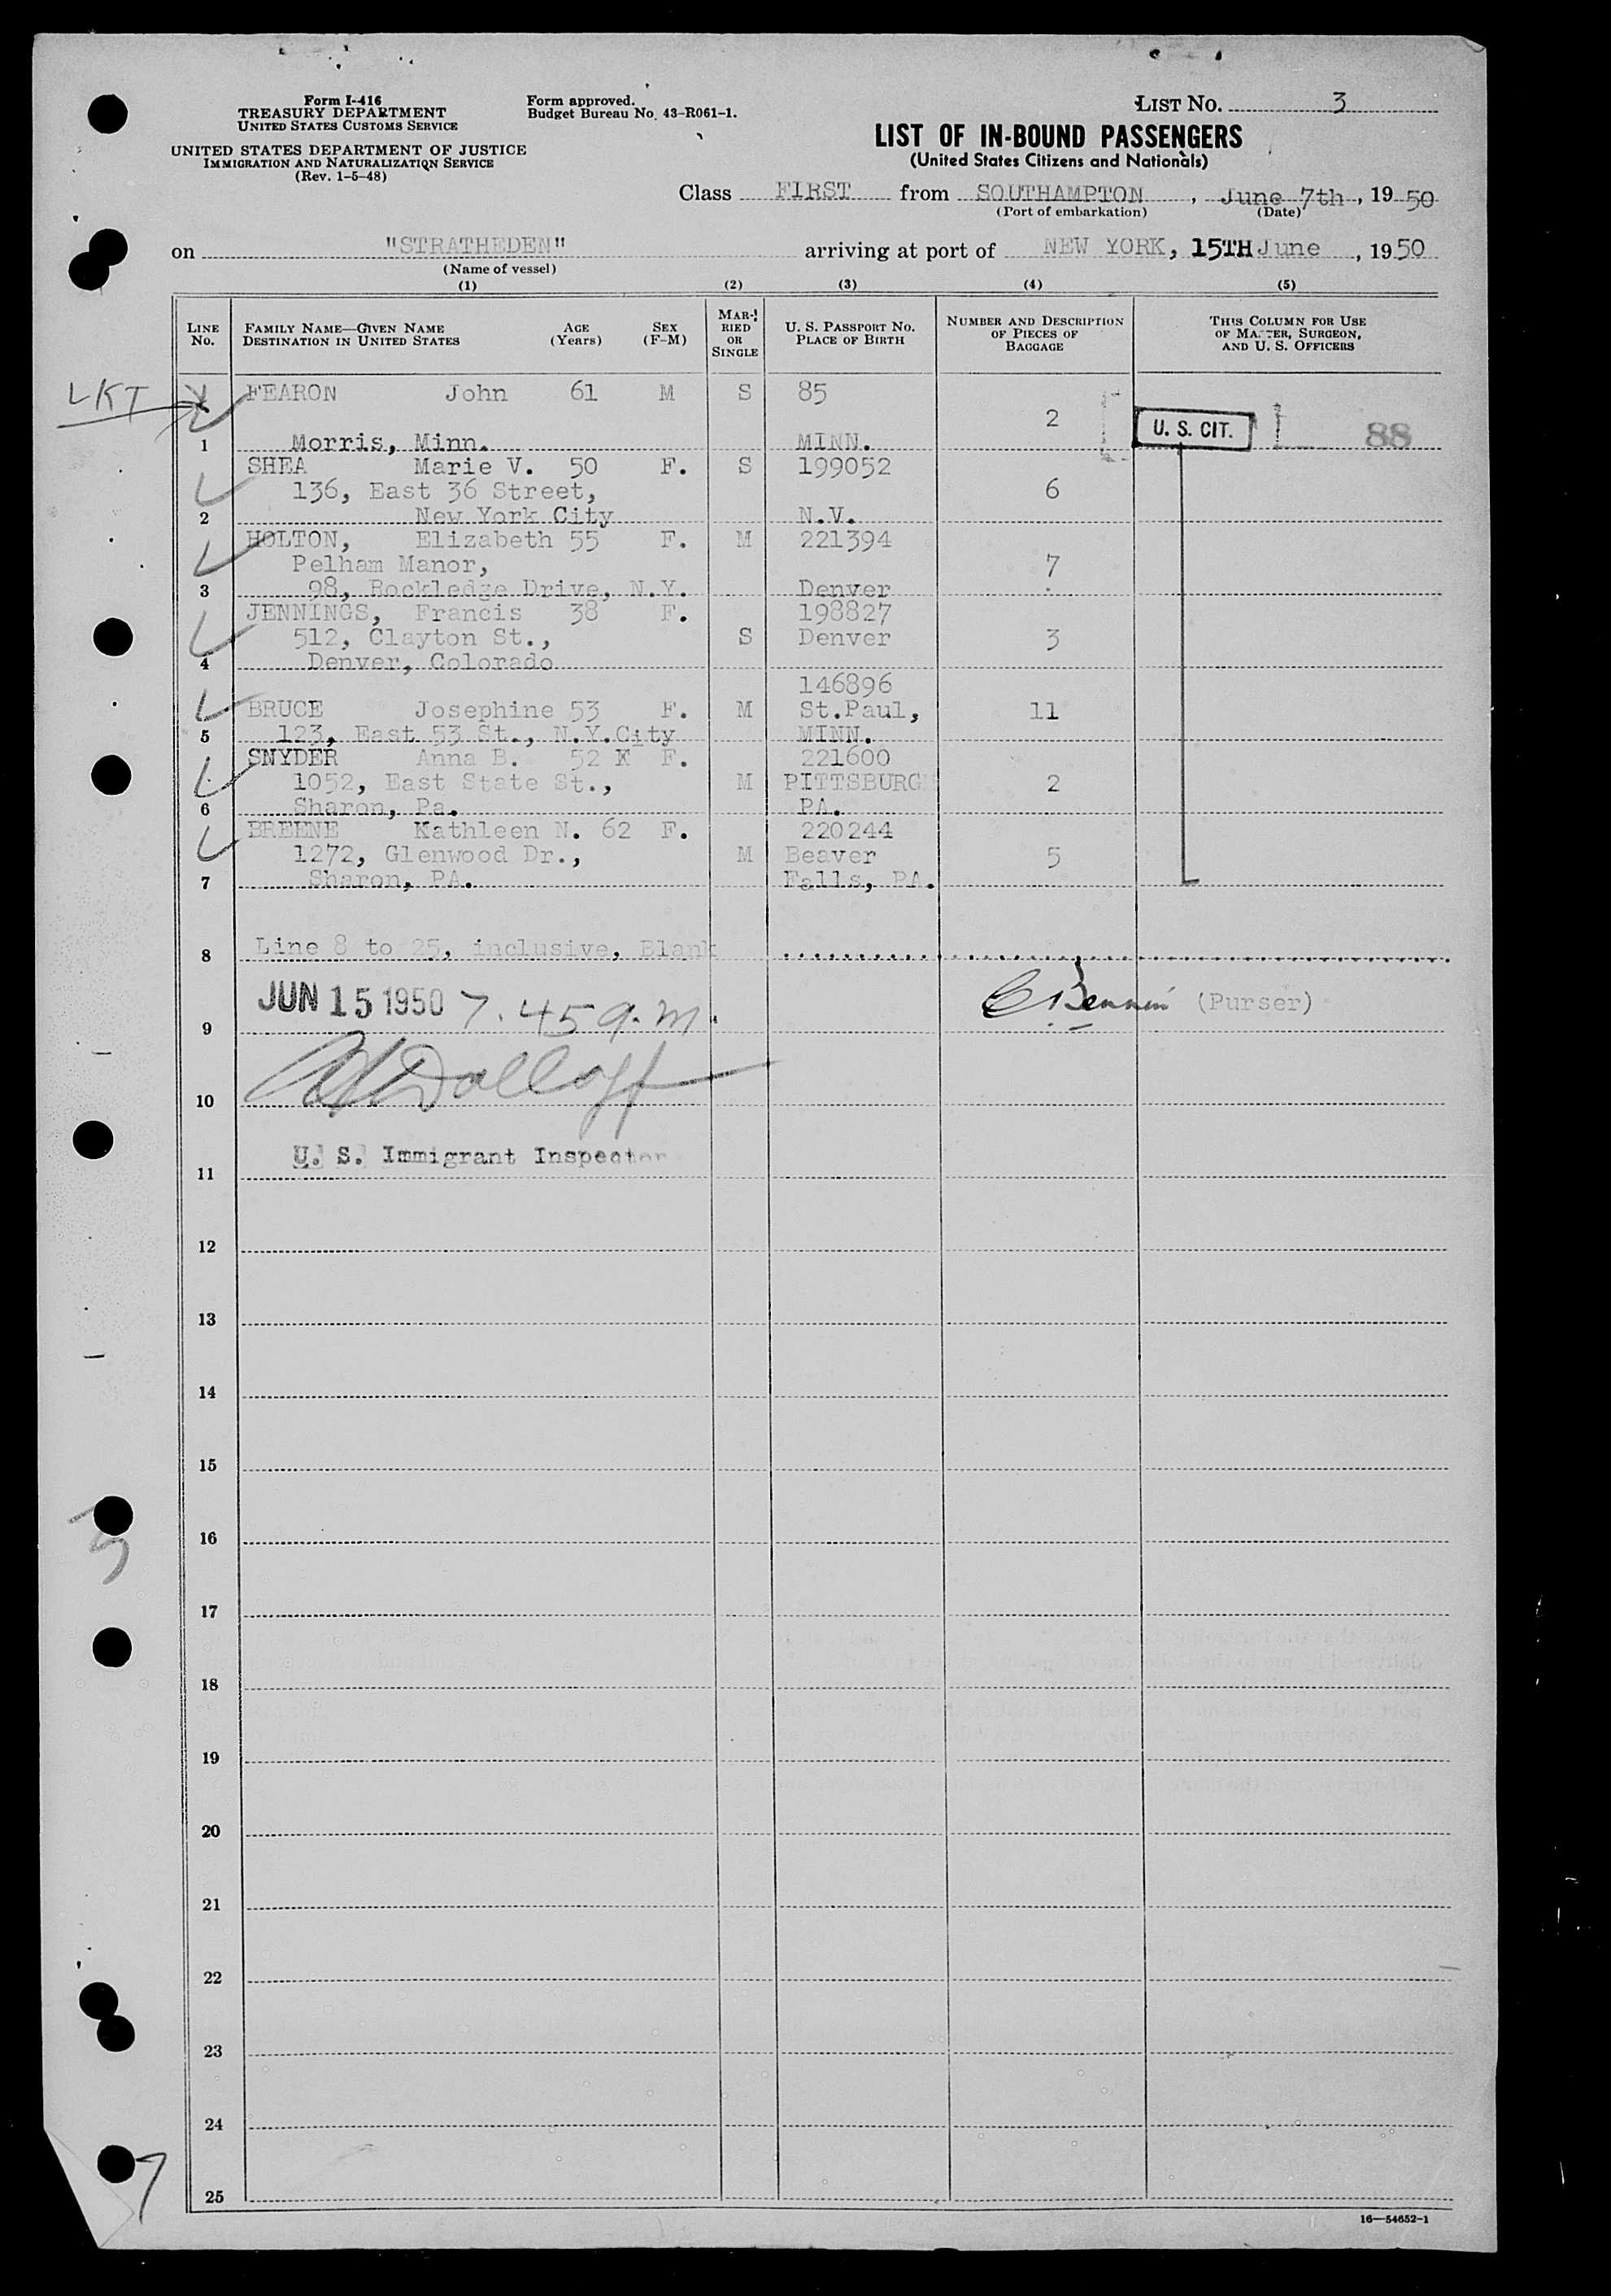 Form I-416
TREASURY DEPARTMENT
UNITED STATES CUSTOMS SERVICE
UNITED STATES DEPARTMENT OF JUSTICE
IMMIGRATION AND NATURALIZATION SERVICE
(Rev. 1-5-48)
Form approved.
Budget Bureau No. 43-R061-1.
LIST NO. 3
LIST OF IN-BOUND PASSENGERS
(United States Citizens and Nationals)
Class FIRST from SOUTHAMPTON, June 7th, 1950
(Port of embarkation) (Date)
on "STRATHEDEN" arriving at port of NEW YORK, 15TH June, 1950
(Name of vessel)
(1) (2) (3) (4) (5)
LINE NO. FAMILY NAME—GIVEN NAME DESTINATION IN UNITED STATES AGE (Years) SEX (F-M) MARRIED OR SINGLE U. S. PASSPORT NO. PLACE OF BIRTH NUMBER AND DESCRIPTION OF PIECES OF BAGGAGE THIS COLUMN FOR USE OF MASTER, SURGEON, AND U. S. OFFICERS
LKT FEARON John 61 M S 85
2 U. S. CIT. 88
1 Morris, Minn. MINN.
SHEA Marie V. 50 F. S 199052
136, East 36 Street, 6
2 New York City N.V.
HOLTON, Elizabeth 55 F. M 221394
Pelham Manor, 7
3 98, Rockledge Drive, N.Y. Denver
JENNINGS, Francis 38 F. 198827
512, Clayton St., S Denver 3
4 Denver, Colorado
146896
BRUCE Josephine 53 F. M St.Paul, 11
5 123, East 53 St., N.Y.City MINN.
SNYDER Anna B. 52 F. 221600
1052, East State St., M PITTSBURG 2
6 Sharon, Pa. PA.
BREENE Kathleen N. 62 F. 220244
1272, Glenwood Dr., M Beaver 5
7 Sharon, PA. Falls, PA.
8 Line 8 to 25, inclusive, Blank
JUN 15 1950 7.45 a.m. (Purser)
9
10
U. S. Immigrant Inspector
11
12
13
14
15
16
17
18
19
20
21
22
23
24
25
16—54652-1